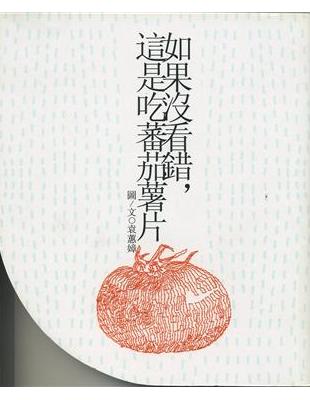 如果沒看錯，
這是吃蕃茄薯片
圖/文○袁蕙婷